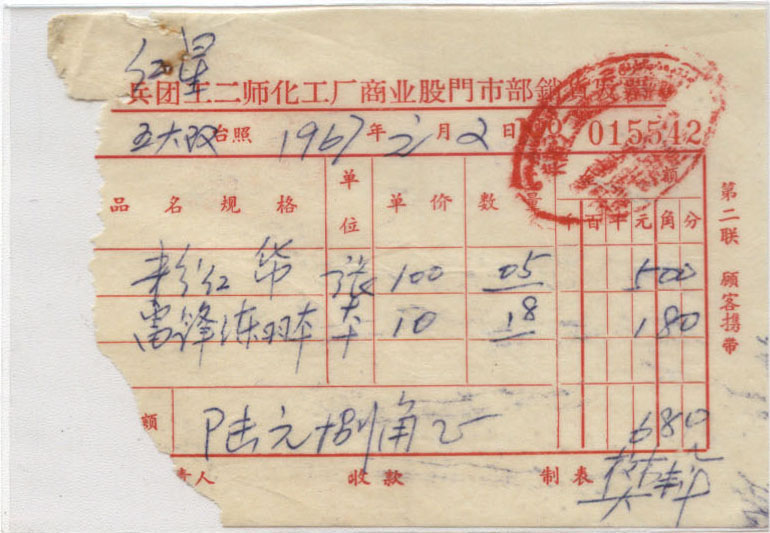 红星
兵团工二师化工厂商业股門市部銷貨发票
五大队 台照 1967年 2月2日 No 015542
品名规格 单位 单价 数量 金额
千百十元角分
粉红 张 100 05 500
雷锋练习本 本 10 18 180
额 陆元捌角正 680
责人 收款 制表
第二联 顧客携带